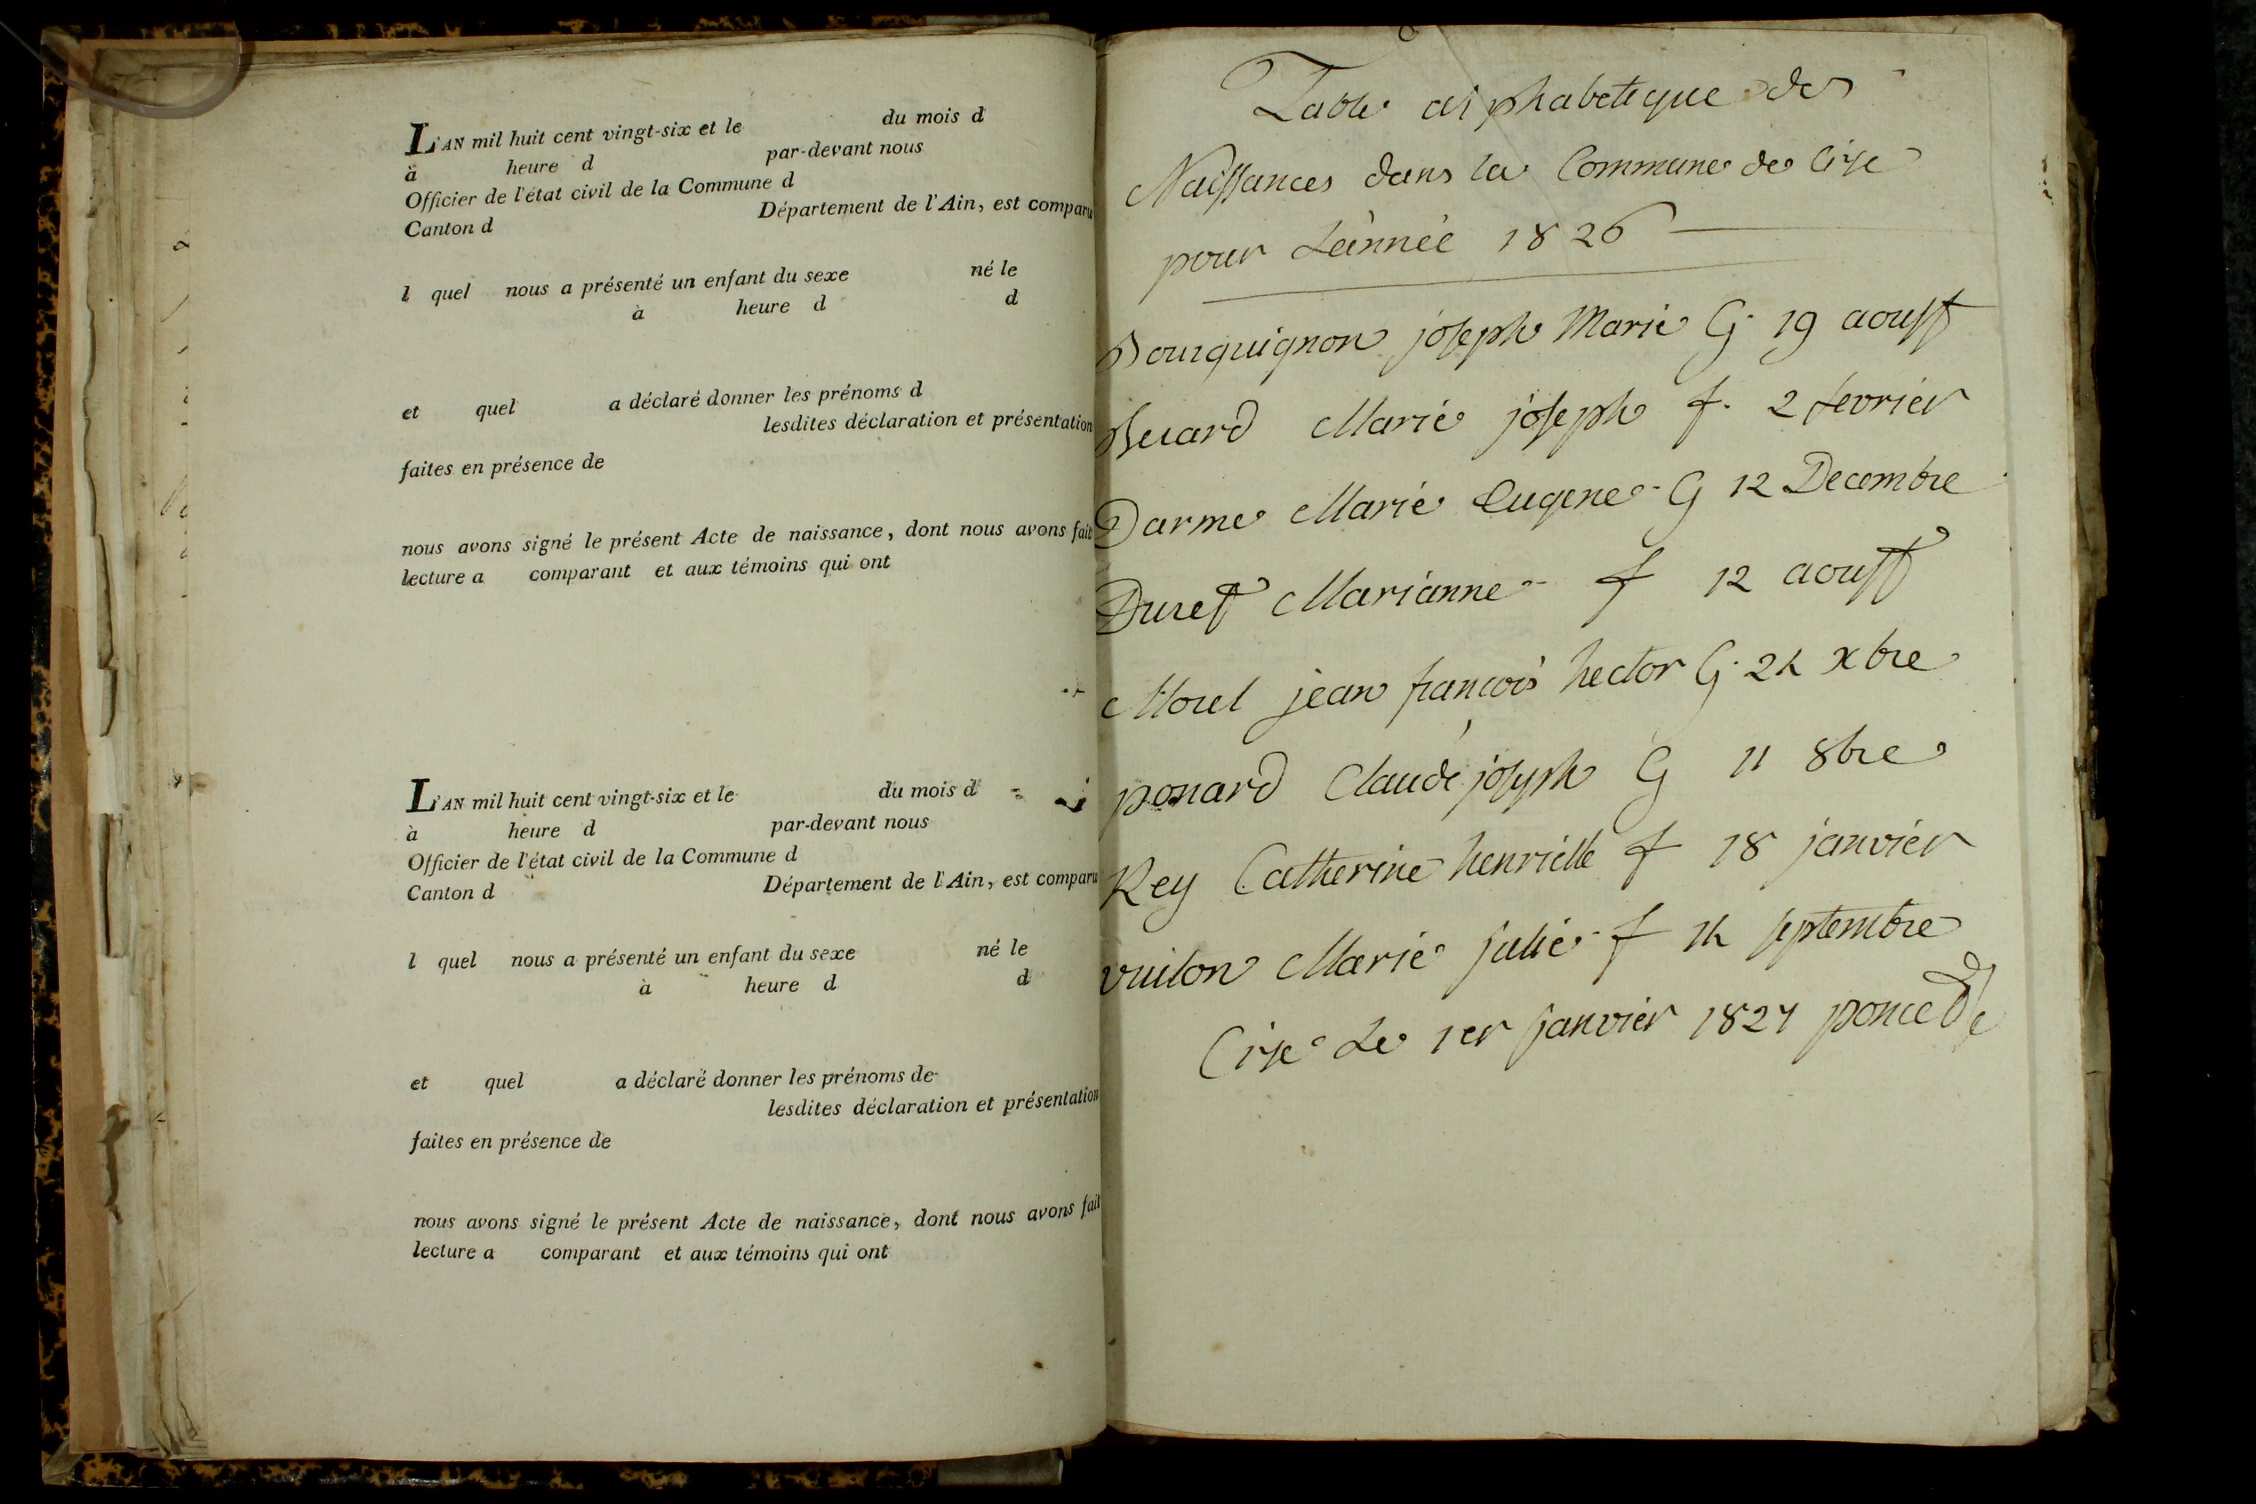 L'AN mil huit cent vingt-six et le du mois d
à heure d par-devant nous
Officier de l'état civil de la Commune d
Canton d Département de l'Ain, est comparu
l quel nous a présenté un enfant du sexe né le
à heure d d
et quel a déclaré donner les prénoms d
lesdites déclaration et présentation
faites en présence de
nous avons signé le présent Acte de naissance, dont nous avons fait
lecture a comparant et aux témoins qui ont
L'AN mil huit cent vingt-six et le du mois d
à heure d par-devant nous
Officier de l'état civil de la Commune d
Canton d Département de l'Ain, est comparu
l quel nous a présenté un enfant du sexe né le
à heure d d
et quel a déclaré donner les prénoms de
lesdites déclaration et présentation
faites en présence de
nous avons signé le présent Acte de naissance, dont nous avons fait
lecture a comparant et aux témoins qui ont
Table alphabetique des
Naissances dans la Commune de Cize
pour L'année 1826
Bourquignon joseph Marie G. 19 aoust
Marie joseph f. 2 fevrier
Darme Marie Eugene G 12 Decembre
Duret Marianne f 12 aoust
Morel jean françois hector G. 24 xbre
ponard Claude joseph G 11 8bre
Rey Catherine henriette f 18 janvier
vuilon Marie julie f 14 septembre
Cize Le 1er janvier 1827 poncet